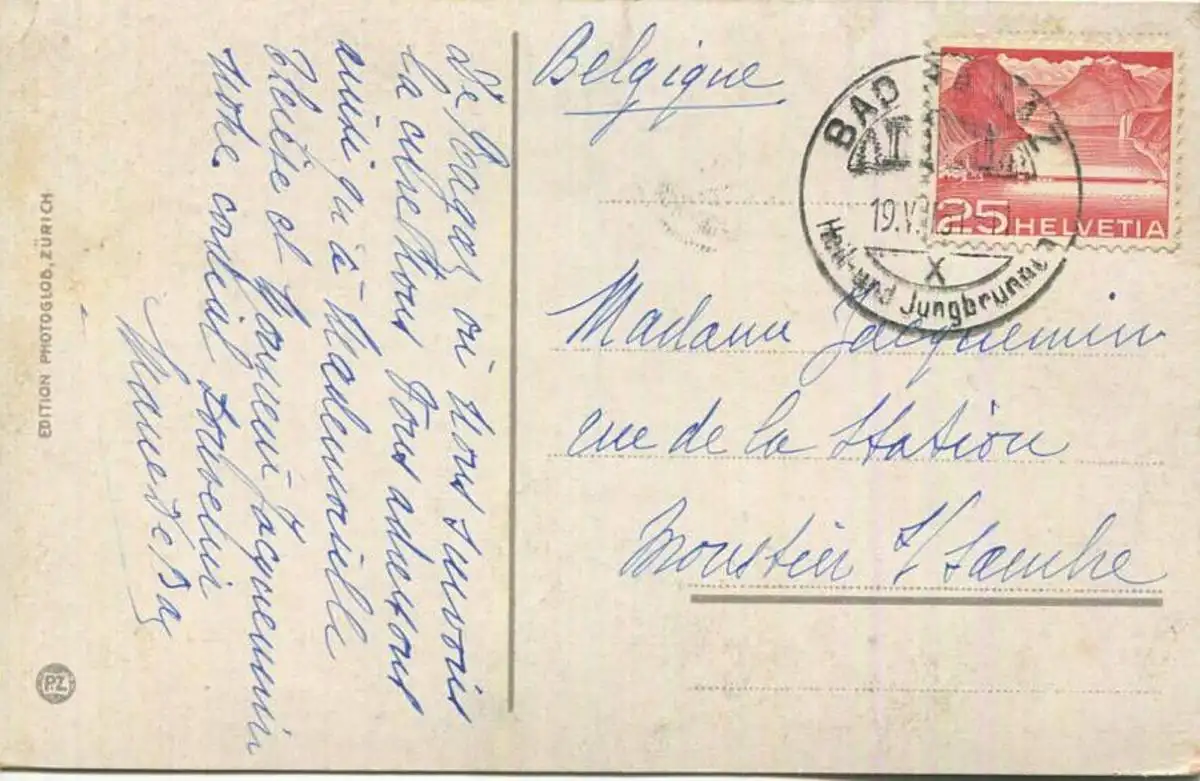 De Ragaz où nous suivons
la cure nous vous adressons
ainsi qu'à Mademoiselle
et Monsieur Jacquemin
notre cordial souvenir
EDITION PHOTOGLOB, ZÜRICH
P.Z
Belgique
BAD RAGAZ
19.V
Heil-und Jungbrunnen
X
25 HELVETIA
Madame Jacquemin
rue de la Station
Moustier s/Sambre